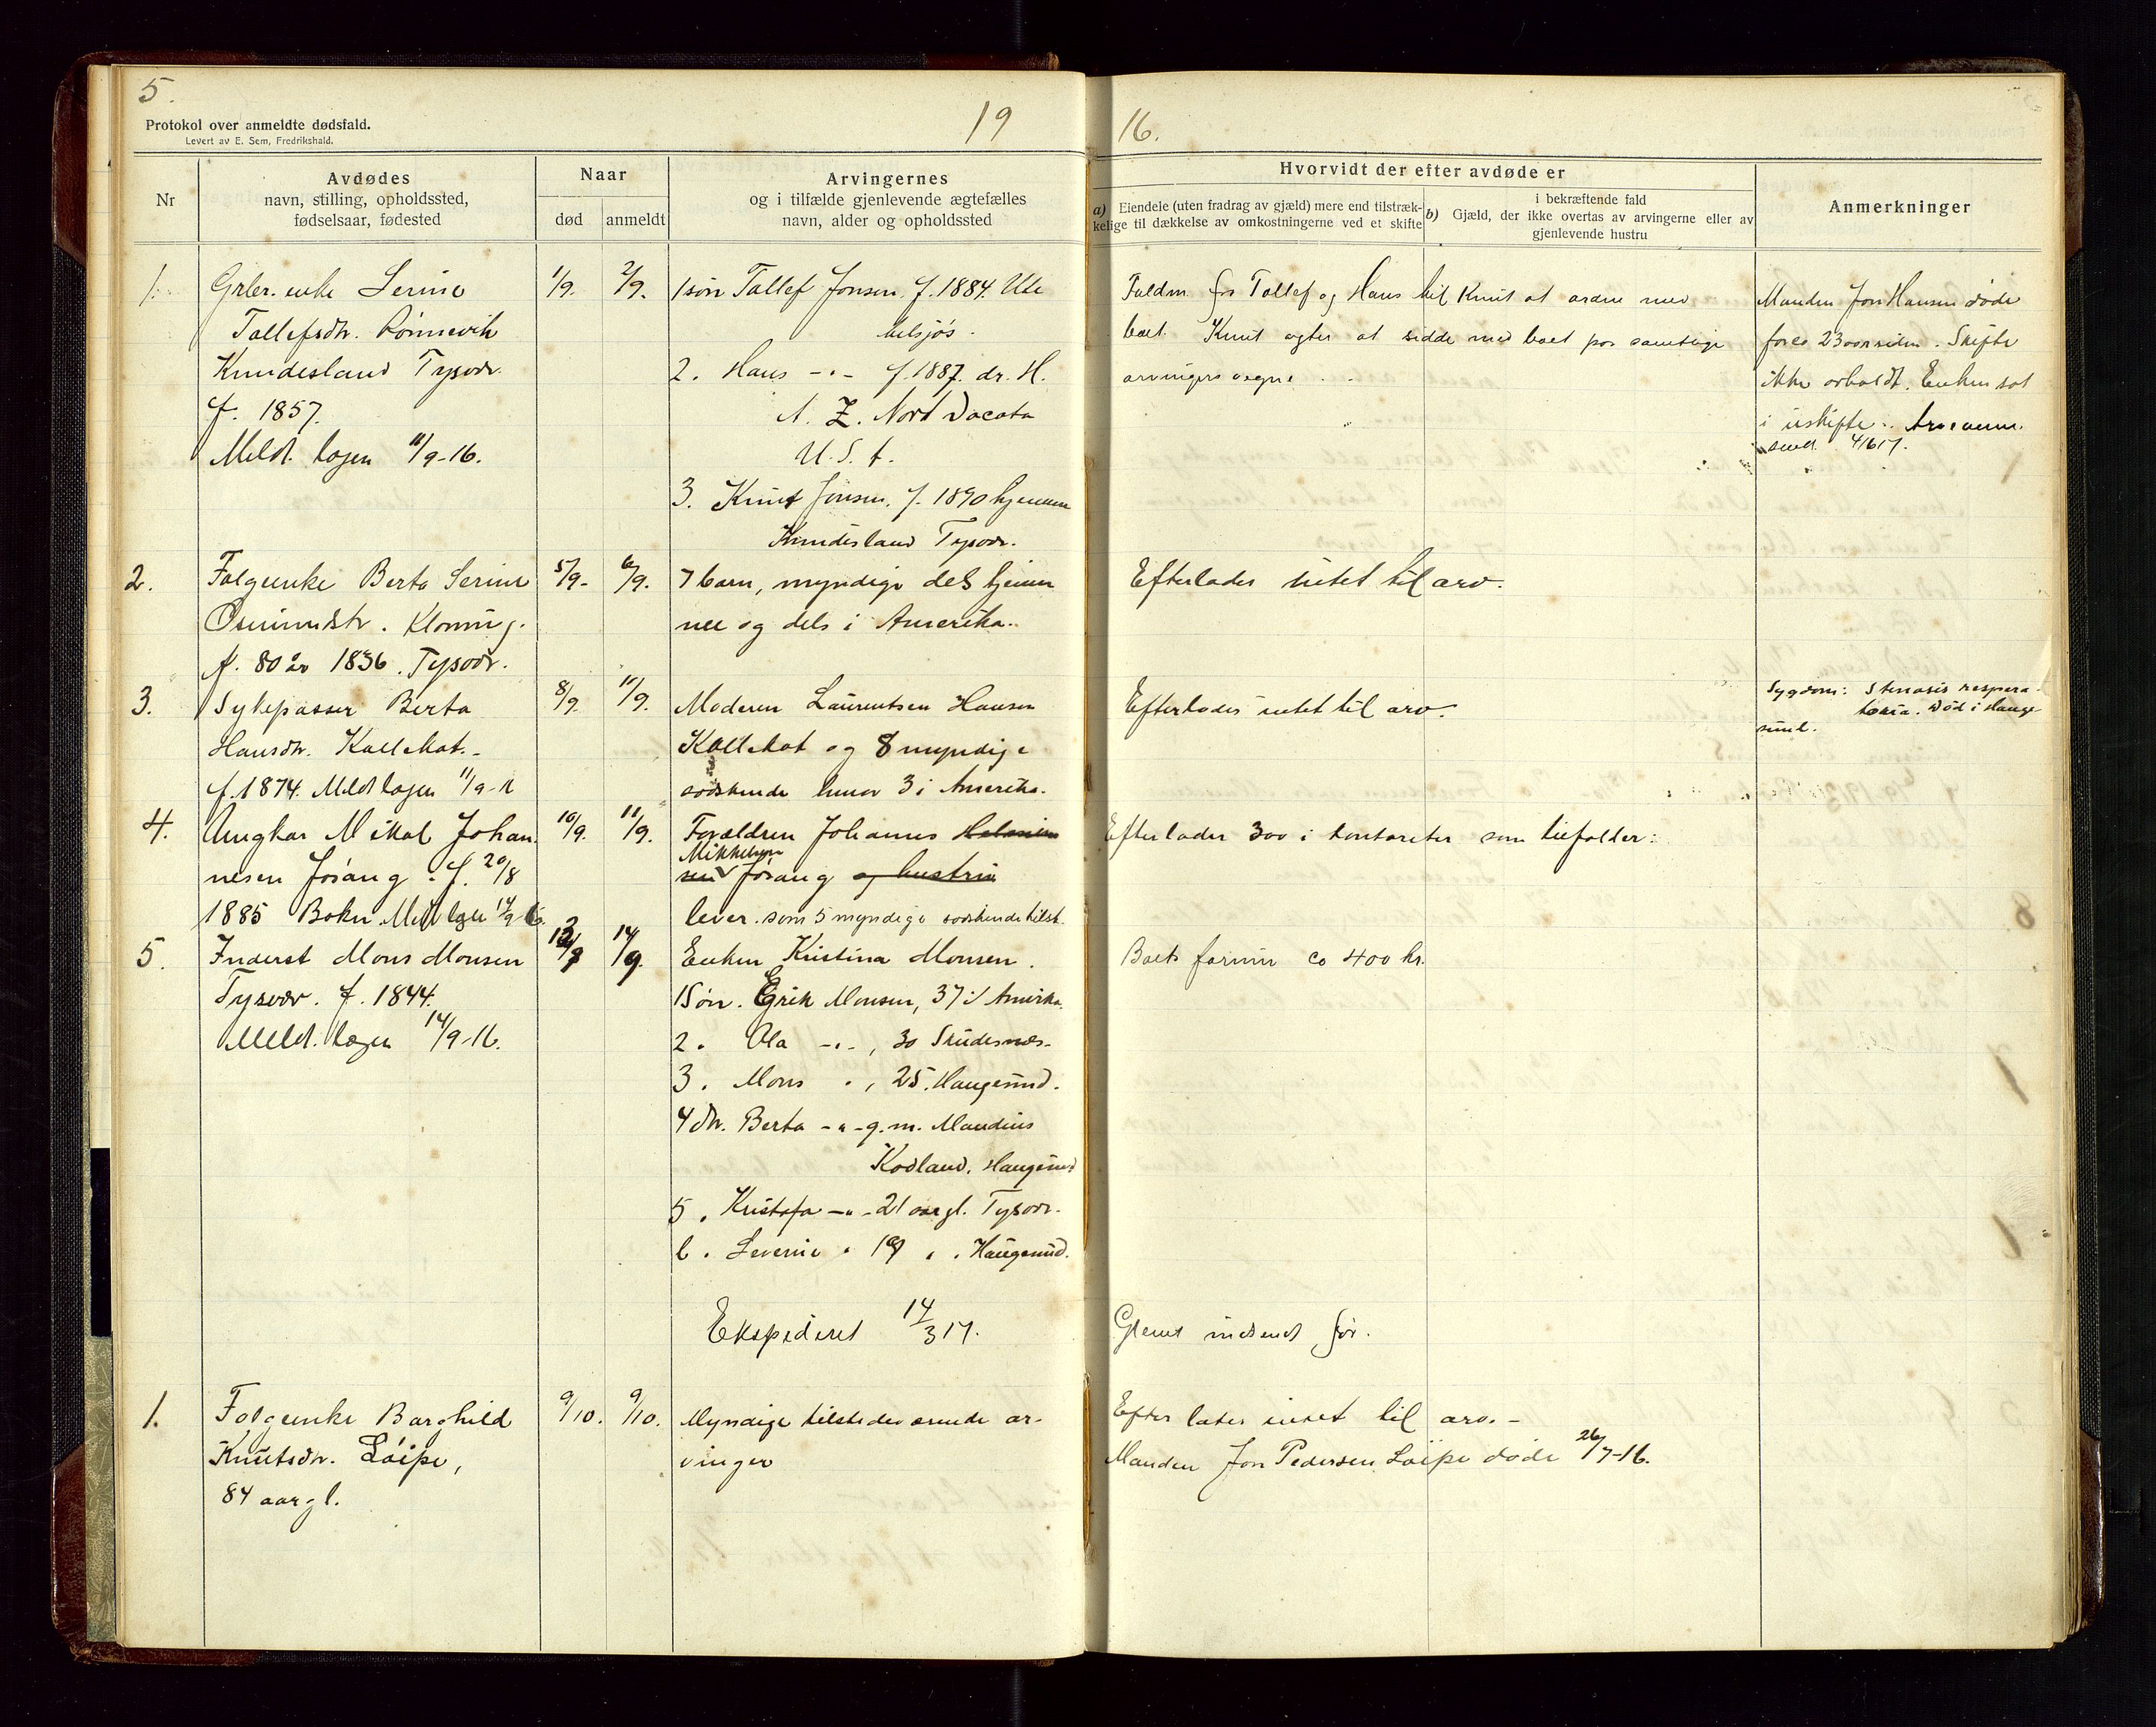 5.
Protokol over anmeldte dødsfald.
Levert av E. Sem, Fredrikshald.
19
16.
Nr
Avdødes
navn, stilling, opholdssted,
fødselsaar, fødested
Naar
død
anmeldt
Arvingernes
og i tilfælde gjenlevende ægtefælles
navn, alder og opholdssted
Hvorvidt der efter avdøde er
a) Eiendele (uten fradrag av gjæld) mere end tilstræk-
kelige til dækkelse av omkostningerne ved et skifte
i bekræftende fald
b) Gjæld, der ikke overtas av arvingerne eller av
gjenlevende hustru
Anmerkninger
1.
Grbr. enke Serine
Tallefsdtr. Rönnevik
Knudesland Tysvær.
f. 1857.
Meldt. lagen 11/9-16.
1/9.
2/9.
1 sön Tallef Jonsen f. 1884. Ute
tilsjös.
2. Hans -"- f. 1887. dr. H.
A. Z. Nord Dacota
U.S.A.
3. Knut Jonsen, f. 1890 hjemme
Knudesland Tysvær.
Fuldm. fra Tallef og Hans til Knut at ordne med
boet. Knut agter at sidde med boet paa samtlige
arvingers vegne.
Manden Jon Hansen döde
for ca 23 aar siden. Skifte
ikke avholdt. Enken sat
i uskifte.
send. 4/6 17.
2.
Folgeenke Berta Serine
Osmundsdtr. Klovning.
f. 80 år 1836. Tysvær.
5/9-
6/9.
7 barn, myndige dels hjemme
og dels i Amerika.
Efterlader intet til arv.
3.
Sykepasser Berta
Hansdtr. Kallekot.-
f. 1874. Meldt lagen 11/9-16
8/9.
11/9.
Moderen Laurentsen Hansen
Kallekot og 8 myndige
södskende hvorav 3 i Amerika.
Efterlades intet til arv.
Sygdom: Stenosis respera-
toria. Död i Hauge-
sund.
4.
Ungkar Mikal Johan-
nesen Jösang. f. 20/8
1885 Bokn. Meldt lagen 14/9 16.
10/9.
11/9.
Forældren Johannes
Mikkelsen
sen Jösang og hustru
lever. som 5 myndige södskende tilst.
Efterlader 300 i kontanter som tilfalder:
5.
Inderst Mons Monsen
Tysvær. f. 1844.
Meldt. lagen 14/9-16.
13/9
14/9.
Enken Kristina Monsen.
1 Sön. Erik Monsen, 37 i Amerika.
2. Ola -"-, 30 Skudesnes.
3. Mons ", 25. Haugesund.
4 dtr. Berta -"- g.m. Maudius
Kodland. Haugesund
5. Kristofa -"- 21 aar gl. Tysvær.
6. Severine " 19 " " Haugesund.
Boets formue ca 400 kr.
Ekspederet 14/3 17.
Glemt indsendt för.
1.
Folgeenke Borghild
Knutsdtr. Löipe,
84 aar gl.
9/10.
9/10.
Myndige tilstedeværende ar-
vinger
Efterlates intet til arv.-
Manden Jon Pedersen Löipe döde 26/7-16.